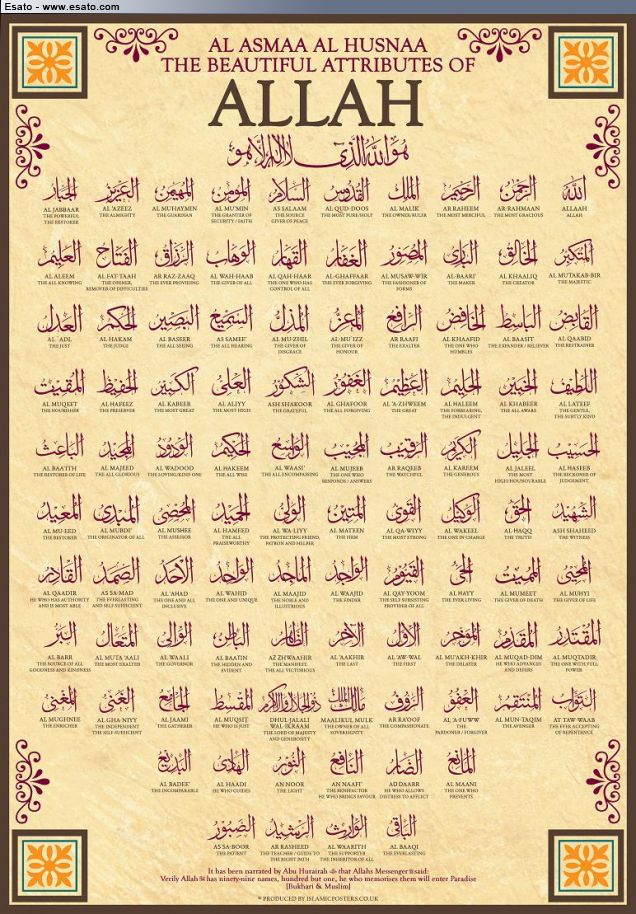 Esato - www.esato.com
AL ASMAA AL HUSNAA
THE BEAUTIFUL ATTRIBUTES OF
ALLAH
هو الله الذي لا إله إلا هو
الله
ALLAAH
ALLAH
الرحمن
AR-RAHMAAN
THE MOST GRACIOUS
الرحيم
AR RAHEEM
THE MOST MERCIFUL
الملك
AL MALIK
THE OWNER/RULER
القدوس
AL QUD-DOOS
THE MOST PURE/HOLY
السلام
AS SALAAM
THE SOURCE
GIVER OF PEACE
المؤمن
AL MU'MIN
THE GRANTER OF
SECURITY / FAITH
المهيمن
AL MUHAYMIN
THE GUARDIAN
العزيز
AL 'AZEEZ
THE ALMIGHTY
الجبار
AL JABBAAR
THE POWERFUL
THE RESTORER
المتكبر
AL MUTAKAB-BIR
THE MAJESTIC
الخالق
AL KHAALIQ
THE CREATOR
البارئ
AL-BAARI'
THE MAKER
المصور
AL MUSAW-WIR
THE FASHIONER OF
FORMS
الغفار
AL-GHAFFAAR
THE EVER FORGIVING
القهار
AL QAH-HAAR
THE ONE WHO HAS
CONTROL OF ALL
الوهاب
AL WAH-HAAB
THE GIVER OF ALL
الرزاق
AR RAZ-ZAAQ
THE EVER PROVIDING
الفتاح
AL FAT-TAAH
THE OPENER,
REMOVER OF DIFFICULTIES
العليم
AL ALEEM
THE ALL KNOWING
القابض
AL QAABID
THE RESTRAINER
الباسط
AL BAASIT
THE EXPANDER / RELIEVER
الخافض
AL KHAAFID
THE ONE WHO
HUMBLES
الرافع
AR RAAFI
THE EXALTER
المعز
AL-MU'IZZ
THE GIVER OF
HONOUR
المذل
AL MU-ZHIL
THE GIVER OF
DISGRACE
السميع
AS SAMEE'
THE ALL HEARING
البصير
AL BASEER
THE ALL SEEING
الحكم
AL HAKAM
THE JUDGE
العدل
AL 'ADL
THE JUST
اللطيف
AL LATEEF
THE GENTLE,
THE SUBTLY KIND
الخبير
AL KHABEER
THE ALL AWARE
الحليم
AL HALEEM
THE FORBEARING,
THE INDULGENT
العظيم
AL 'A-ZHWEEM
THE GREAT
الغفور
AL GHAFOOR
THE ALL FORGIVING
الشكور
ASH SHAKOOR
THE GRATEFUL
العلي
AL ALIYY
THE MOST HIGH
الكبير
AL KABEER
THE MOST GREAT
الحفيظ
AL HAFEEZ
THE PRESERVER
المقيت
AL MUQEET
THE NOURISHER
الحسيب
AL HASEEB
THE RECKONER OF
JUDGEMENT
الجليل
AL JALEEL
THE MOST
HIGH/HONOURABLE
الكريم
AL KAREEM
THE GENEROUS
الرقيب
AR RAQEEB
THE WATCHFUL
المجيب
AL MUJEEB
THE ONE WHO
RESPONDS / ANSWERS
الواسع
AL WAASI'
THE ALL ENCOMPASSING
الحكيم
AL HAKEEM
THE ALL WISE
الودود
AL WADOOD
THE LOVING/KIND ONE
المجيد
AL MAJEED
THE ALL GLORIOUS
الباعث
AL BAA'ITH
THE RESTORER OF LIFE
الشهيد
ASH SHAHEED
THE WITNESS
الحق
AL-HAQQ
THE TRUTH
الوكيل
AL WAKEEL
THE ONE IN CHARGE
القوي
AL QA-WIYY
THE MOST STRONG
المتين
AL MATEEN
THE FIRM
الولي
AL WA-LIYY
THE PROTECTING FRIEND,
PATRON AND HELPER
الحميد
AL HAMEED
THE ALL
PRAISEWORTHY
المحصي
AL MUSHEE
THE ASSESSOR
المبدئ
AL MUBDI'
THE ORIGINATOR OF ALL
المعيد
AL MU-EED
THE RESTORER
المحيي
AL MUHYI
THE GIVER OF LIFE
المميت
AL MUMEET
THE GIVER OF DEATH
الحي
AL HAYY
THE EVER LIVING
القيوم
AL QAY-YOOM
THE SELF SUBSISTING
PROVIDER OF ALL
الواجد
AL WAAJID
THE FINDER
الماجد
AL MAAJID
THE NOBLE AND
ILLUSTRIOUS
الواحد
AL WAHID
THE ONE AND UNIQUE
الأحد
AL 'AHAD
THE ONE AND ALL
INCLUSIVE
الصمد
AS SA-MAD
THE EVERLASTING
AND SELF SUFFICIENT
القادر
AL QAADIR
HE WHO HAS AUTHORITY
AND IS MOST ABLE
المقتدر
AL MUQTADIR
THE ONE WITH FULL
POWER
المقدم
AL MUQAD-DIM
HE WHO ADVANCES
AND OFFERS
المؤخر
AL MU'AKH-KHIR
THE DELAYER
الأول
AL 'AW-WAL
THE FIRST
الآخر
AL 'AAKHIR
THE LAST
الظاهر
AZ ZHWAAHIR
THE MANIFEST,
THE ALL VICTORIOUS
الباطن
AL BAATIN
THE HIDDEN AND
EVIDENT
الوالي
AL WAALI
THE GOVERNOR
المتعال
AL MUTA'AALI
THE MOST EXALTED
البر
AL BARR
THE SOURCE OF ALL
GOODNESS AND KINDNESS
التواب
AT TAW-WAAB
THE EVER ACCEPTING
OF REPENTANCE
المنتقم
AL MUN-TAQIM
THE AVENGER
العفو
AL 'A-FUWW
THE
PARDONER / FORGIVER
الرؤوف
AR RA'OOF
THE COMPASSIONATE
مالك الملك
MAALIKUL MULK
THE OWNER OF ALL
SOVEREIGNTY
ذو الجلال والإكرام
DHUL-JALALI
WAL-IKRAAM
THE LORD OF MAJESTY
AND GENEROSITY
المقسط
AL MUQSIT
HE WHO IS JUST
الجامع
AL JAAMI
THE GATHERER
الغني
AL GHA-NIYY
THE INDEPENDENT
THE SELF-SUFFICIENT
المغني
AL MUGHNEE
THE ENRICHER
المانع
AL MAANI
THE ONE WHO
PREVENTS
الضار
AD DAARR
HE WHO ALLOWS
DISTRESS TO AFFLICT
النافع
AN NAAFI'
THE BENEFACTOR
HE WHO BRINGS FAVOUR
النور
AN NOOR
THE LIGHT
الهادي
AL HAADI
HE WHO GUIDES
البديع
AL BADEE'
THE INCOMPARABLE
الباقي
AL BAAQI
THE EVERLASTING
الوارث
AL WAARITH
THE SUPPORTER
THE INHERITER OF ALL
الرشيد
AR RASHEED
THE TEACHER / GUIDE TO
THE RIGHT PATH
الصبور
AS SA-BOOR
THE PATIENT
It has been narrated by Abu Hurairah that Allahs Messenger said:
Verily Allah has ninety-nine names, hundred but one, he who memorises them will enter Paradise
[Bukhari & Muslim]
PRODUCED BY ISLAMICPOSTERS.CO.UK